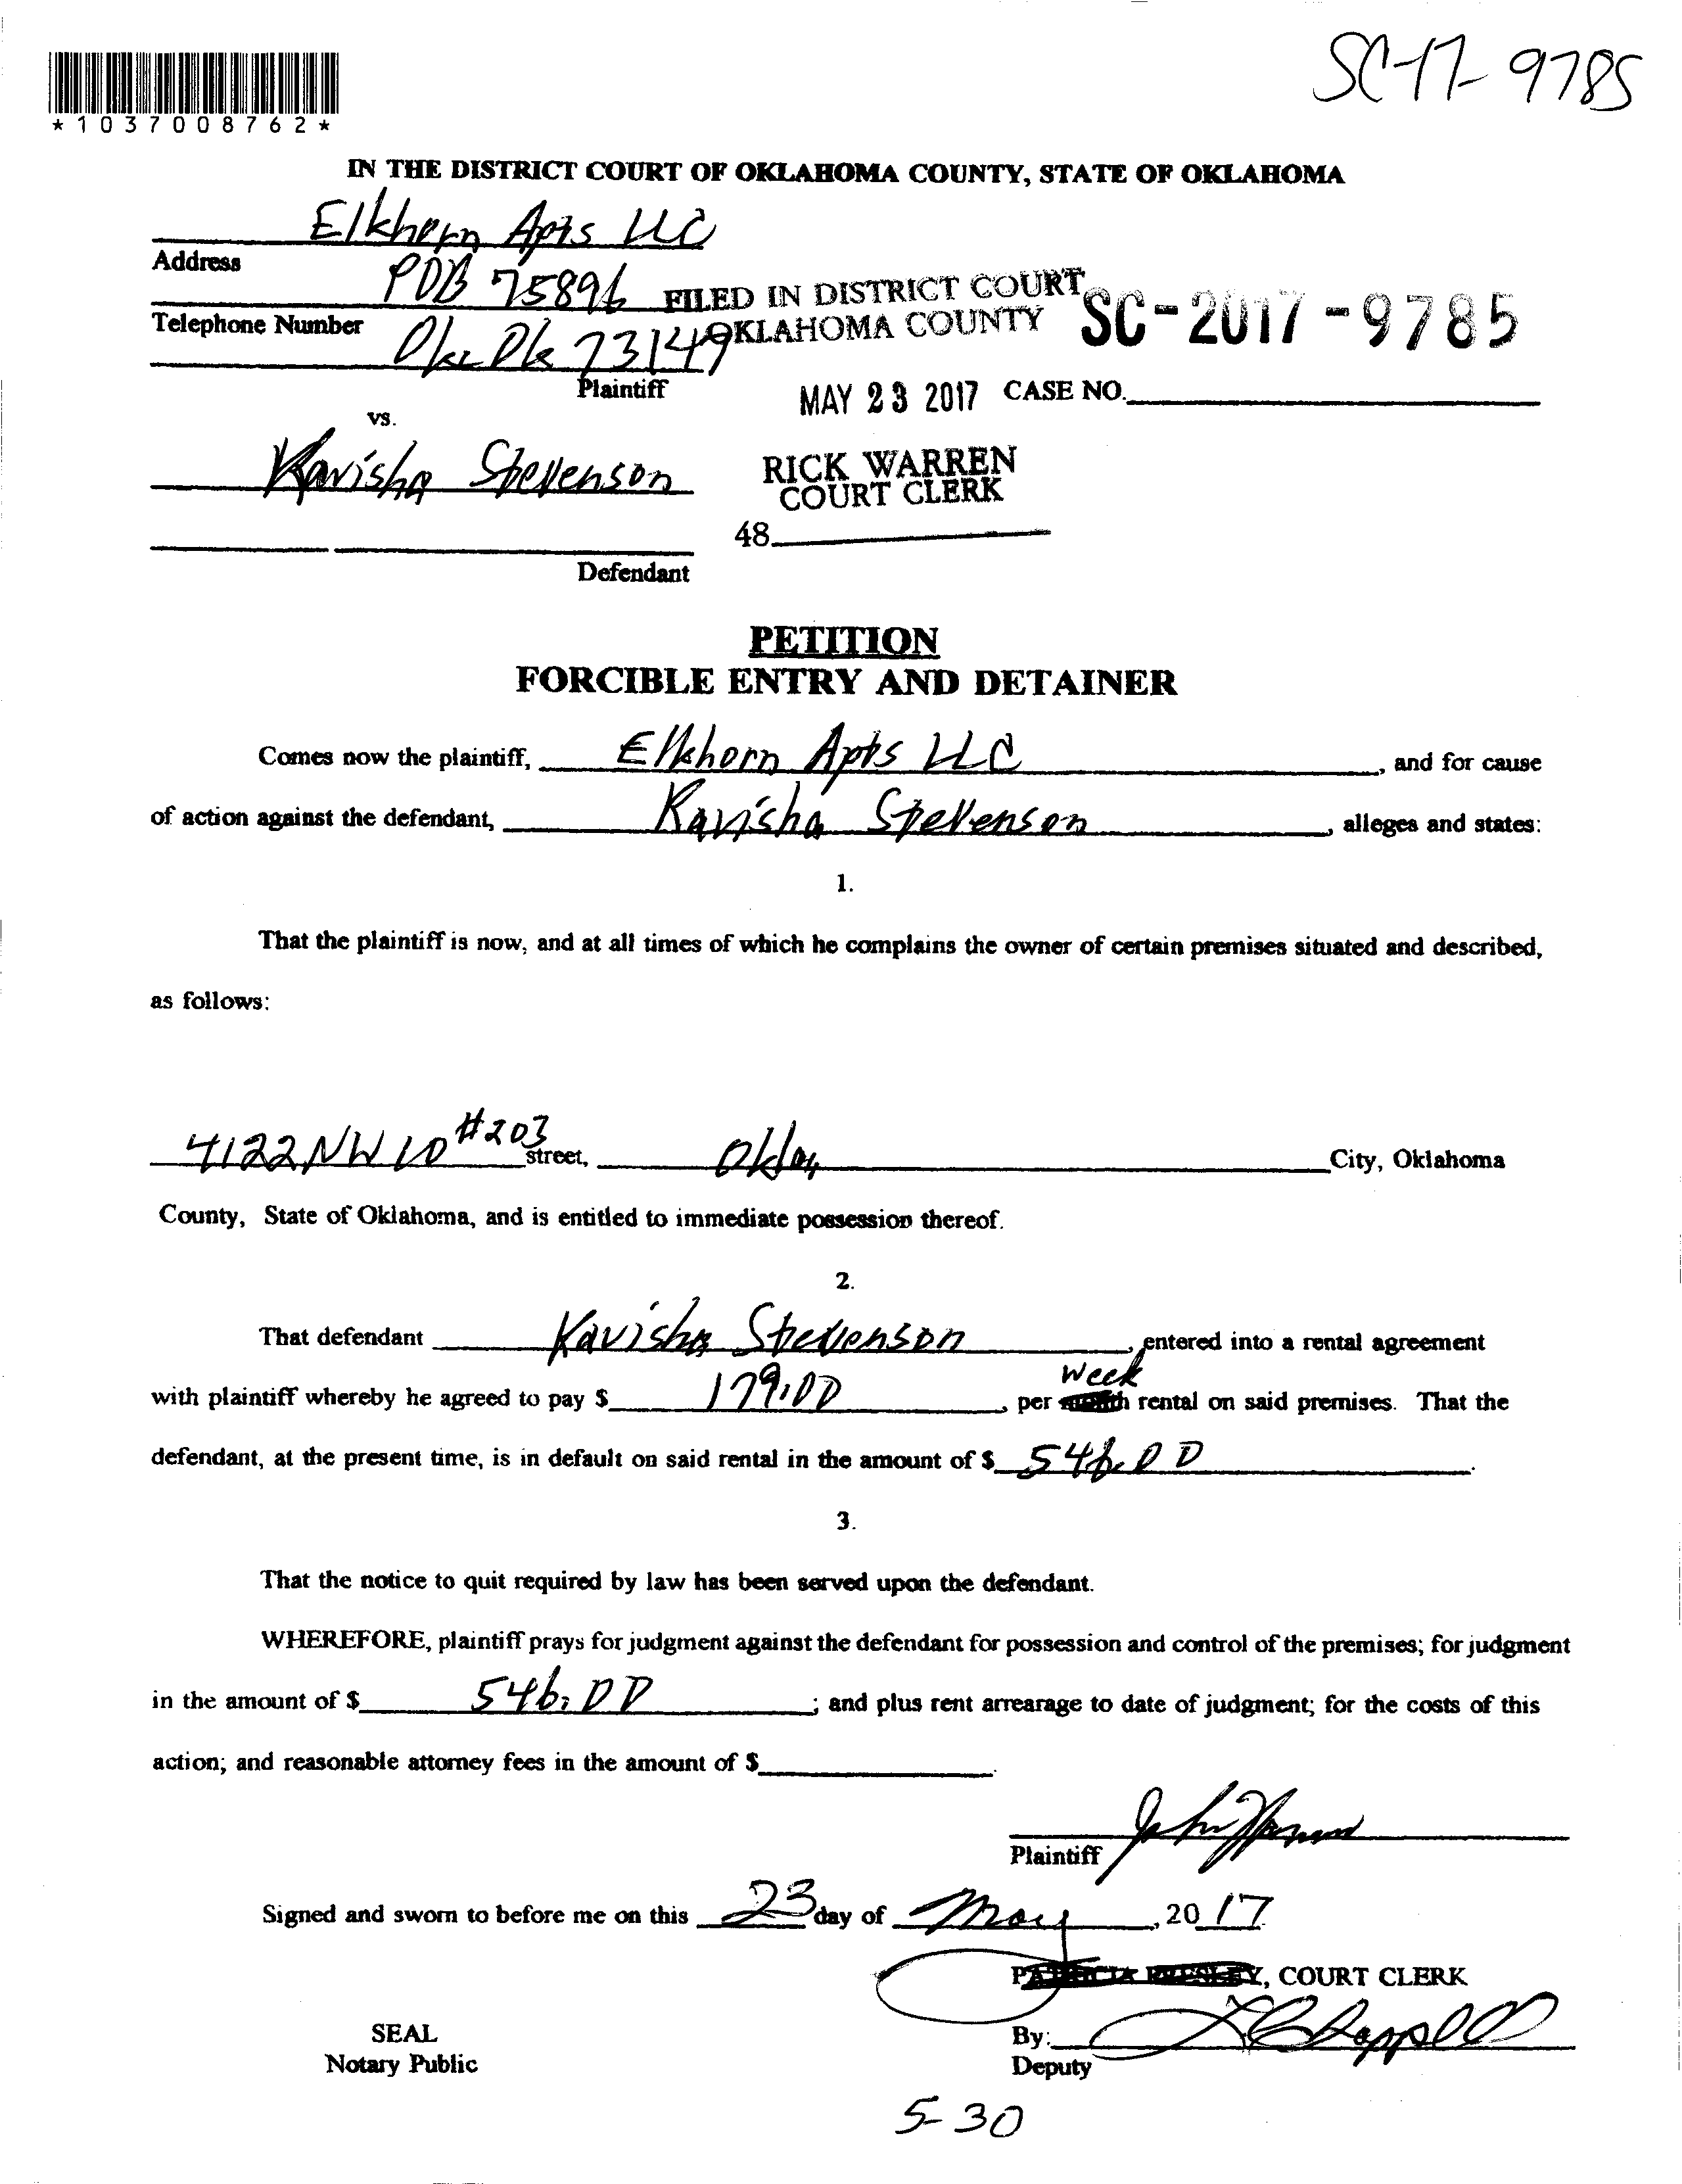 SC-17-9785
*1037008762*
IN THE DISTRICT COURT OF OKLAHOMA COUNTY, STATE OF OKLAHOMA
Elkhorn Apts LLC
Address
POB 75896
FILED IN DISTRICT COURT
OKLAHOMA COUNTY
SC-2017-9785
Telephone Number
Okc Ok 73149
Plaintiff
MAY 23 2017 CASE NO.
vs.
Kavisha Stevenson
RICK WARREN
COURT CLERK
48
Defendant
PETITION
FORCIBLE ENTRY AND DETAINER
Comes now the plaintiff, Elkhorn Apts LLC, and for cause
of action against the defendant, Kavisha Stevenson, alleges and states:
1.
That the plaintiff is now, and at all times of which he complains the owner of certain premises situated and described,
as follows:
4122 NW 10 #203 street, City, Oklahoma
County, State of Oklahoma, and is entitled to immediate possession thereof.
2.
That defendant Kavisha Stevenson, entered into a rental agreement
with plaintiff whereby he agreed to pay $ 179.00, per week rental on said premises. That the
defendant, at the present time, is in default on said rental in the amount of $ 546.00.
3.
That the notice to quit required by law has been served upon the defendant.
WHEREFORE, plaintiff prays for judgment against the defendant for possession and control of the premises; for judgment
in the amount of $ 546.00; and plus rent arrearage to date of judgment; for the costs of this
action; and reasonable attorney fees in the amount of $.
Plaintiff
Signed and sworn to before me on this 23 day of May, 2017
PATRICIA PRESLEY, COURT CLERK
SEAL
Notary Public
By:
Deputy
5-30